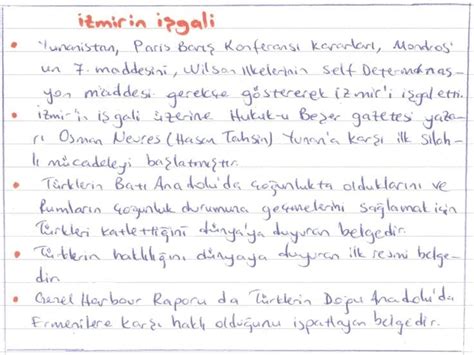 izmirin işgali
• Yunanistan, Paris Barış Konferansı kararları, Mondros'
un 7. maddesini, Wilson ilkelerinin Self Determinas-
yon maddesi gerekçe göstererek İzmir'i işgal etti.
• izmir'in işgali üzerine Hukuk-u Beşer gazetesi yaza-
rı Osman Nevres (Hasan Tahsin) Yunan'a karşı ilk silah-
lı mücadeleyi başlatmıştır.
• Türklerin Batı Anadolu'da çoğunlukta olduklarını ve
Rumların çoğunluk durumuna geçmelerini sağlamak için
Türkleri katlettiğini dünya'ya duyuran belgedir.
• Türklerin haklılığını dünyaya duyuran ilk resmi belge-
dir.
• General Harbour Raporu da Türklerin Doğu Anadolu'da
Ermenilere karşı haklı olduğunu ispatlayan belgedir.